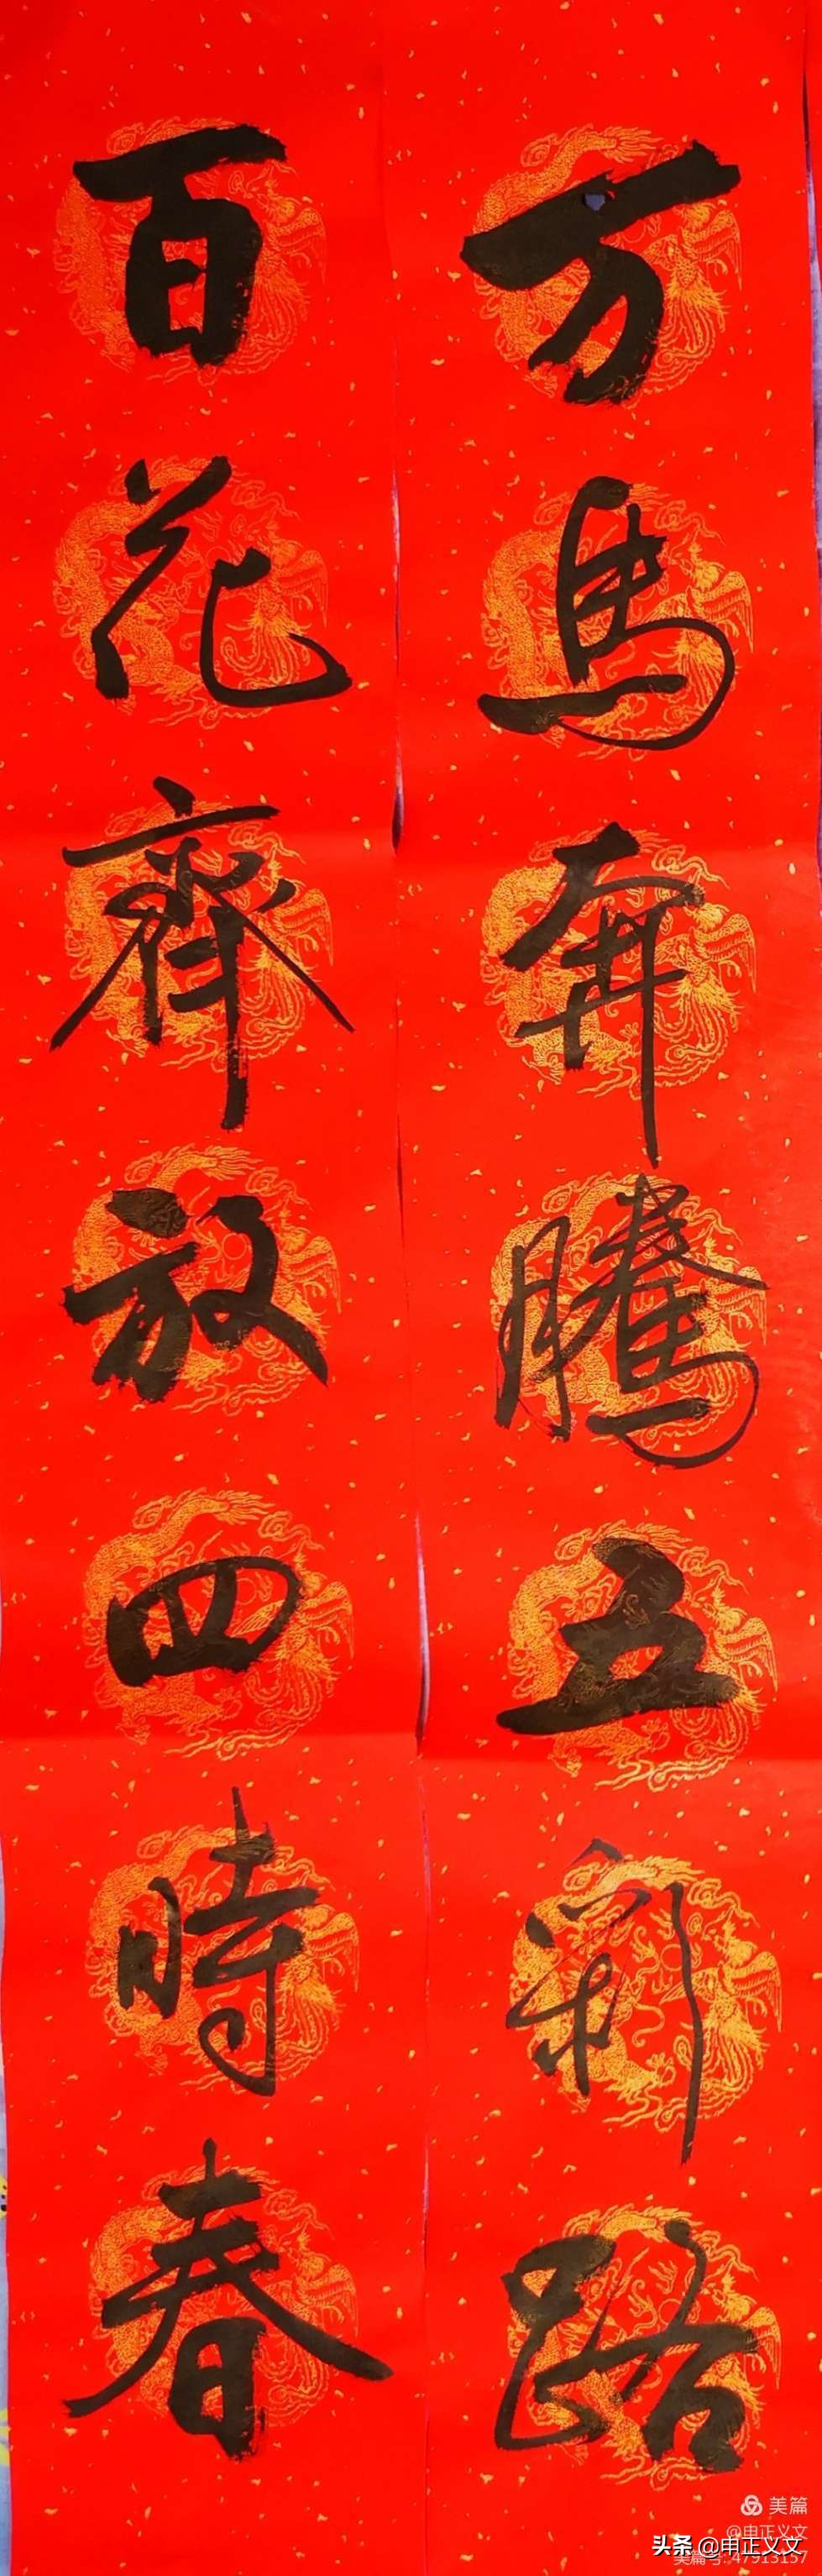 万馬奔騰五彩路
百花齊放四時春
美篇
@申正义文
头条 @申正义文
美篇号: 47913157